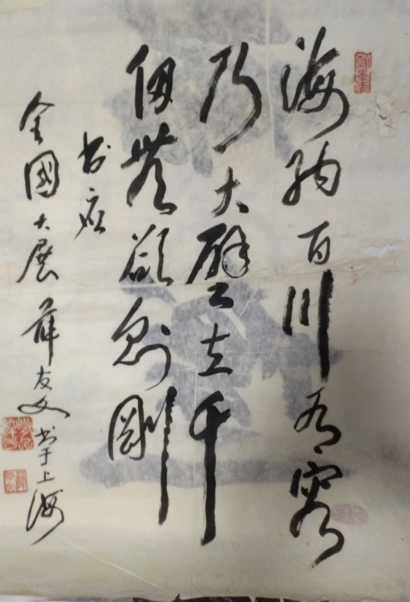 海纳百川有容
乃大壁立千
仞无欲则刚
书应
全國大展薛友文书于上海